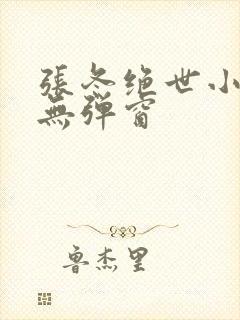 張冬绝世小
無弹窗
魯杰里